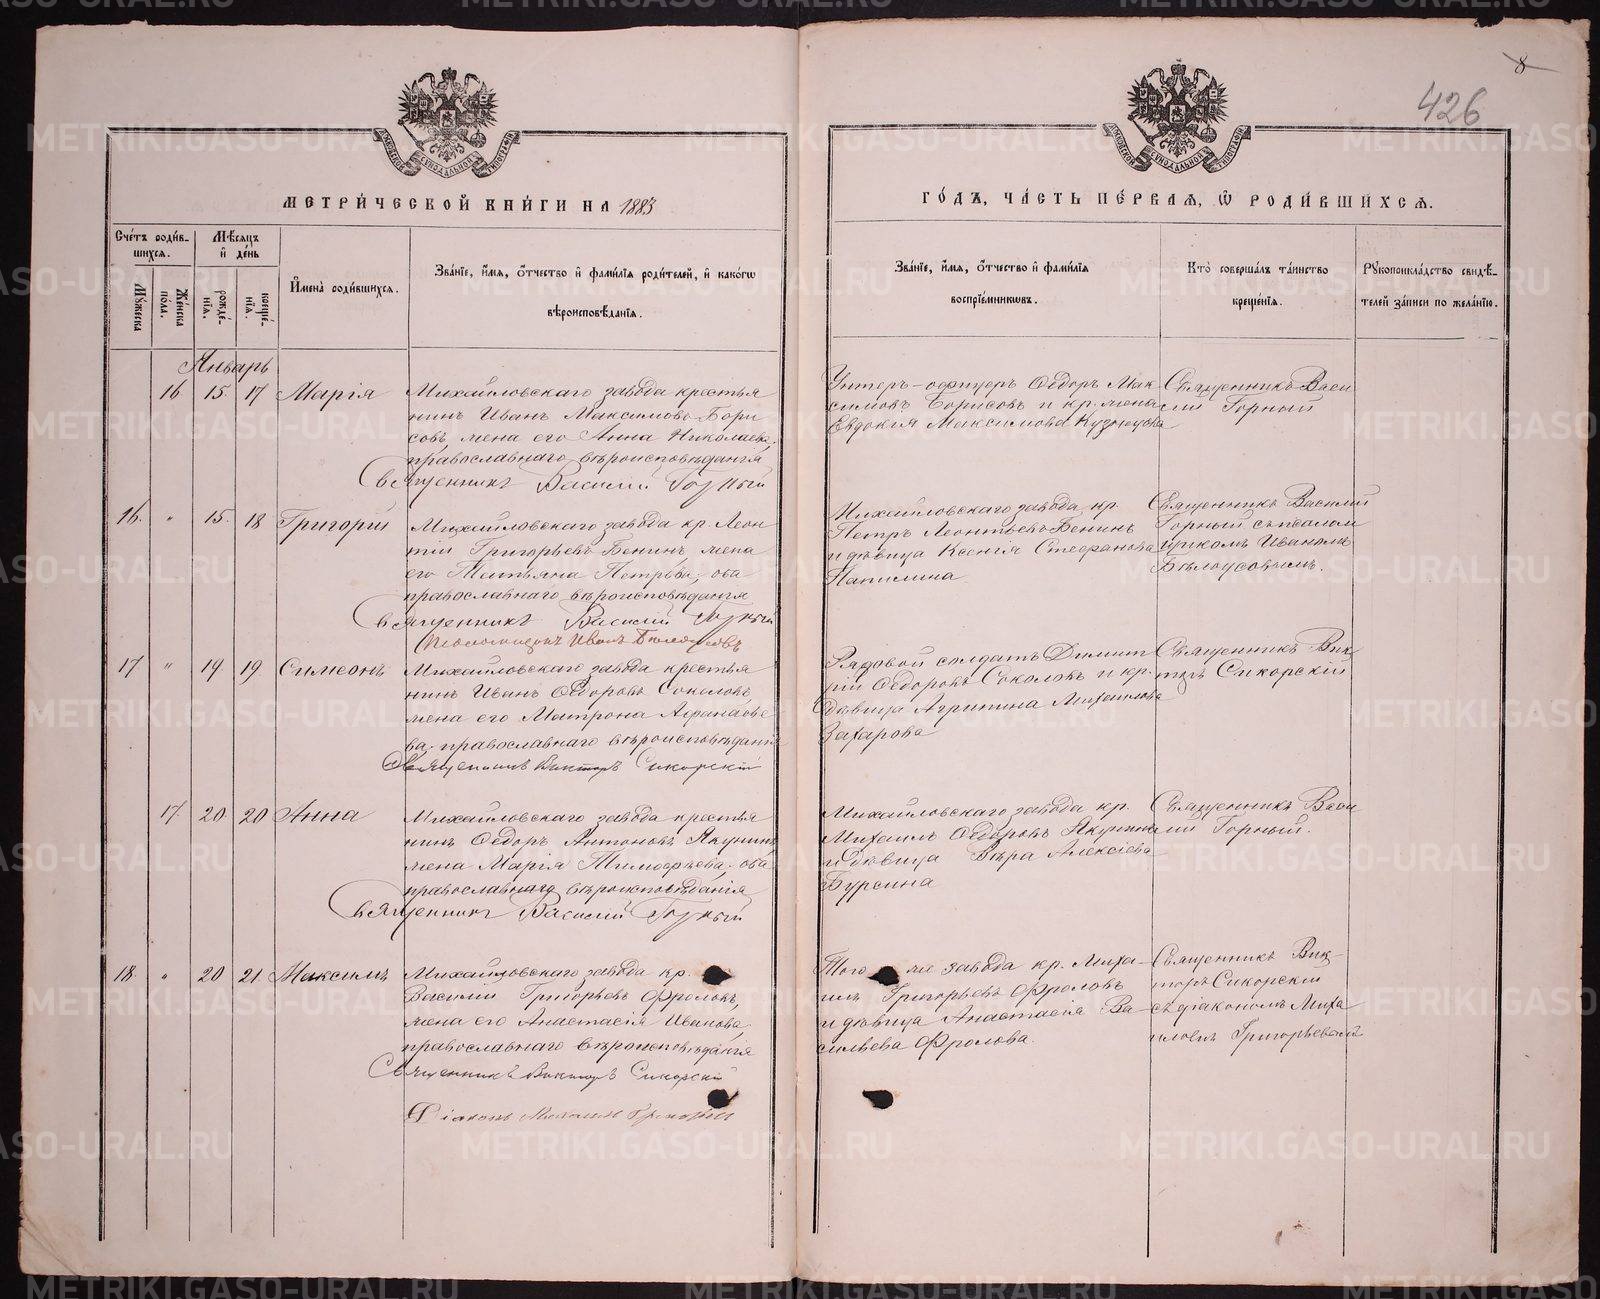 8
426
МОСКОВСКОЙ СѴНОДАЛЬНОЙ ТИПОГРАФІИ
МОСКОВСКОЙ СѴНОДАЛЬНОЙ ТИПОГРАФІИ
МЕТРИ́ЧЕСКОЙ КНИ́ГИ НА 1883
ГО́ДЪ, ЧА́СТЬ ПЕ́РВАЯ, Ѡ РОДИ́ВШИХСЯ.
Сче́тъ роди́в-
шихся.
Мѣ́сяцъ
и де́нь
Му́жеска
Же́нска
по́ла.
рожде́-
нія.
креще́-
нія.
Имена̀ роди́вшихся.
Зва́ніе, и́мя, о́тчество и фами́лія роди́телей, и како́гѡ
вѣроисповѣ́данія.
Зва́ніе, и́мя, о́тчество и фами́лія
воспрїе́мникѡвъ.
Кто̀ соверша́лъ та́инство
креще́нія.
Рукоприкла́дство свидѣ́-
телей за́писи по жела́нію.
Январь
16 15 17 Марія
Михайловскаго завода крестья
нинъ Иванъ Максимовъ Бори
совъ жена его Анна Николаева,
православнаго вѣроисповѣданія
Священникъ Василій Горный
Унтеръ-офицеръ Ѳедоръ Мак
симовъ Борисовъ и кр. жена
Евдокія Максимова Кузнецова
Священникъ Васи
лій Горный
16. " 15. 18 Григорій
Михайловскаго завода кр. Леон
тій Григорьевъ Бенинъ жена
его Татьяна Петрова, оба
православнаго вѣроисповѣданія
Священникъ Василій Горный
Псаломщикъ Иванъ Бѣлоусовъ
Михайловскаго завода кр.
Петръ Леонтьевъ Бенинъ
и дѣвица Ксенія Стефанова
Папилина
Священникъ Василій
Горный съ псалом
щикомъ Иваномъ
Бѣлоусовымъ.
17 " 19 19 Симеонъ
Михайловскаго завода крестья
нинъ Иванъ Ѳедоровъ Соколовъ
жена его Матрона Аѳанасье
ва, православнаго вѣроисповѣданія
Священникъ Викторъ Сикорскій
Рядовой солдатъ Димит
рій Ѳедоровъ Соколовъ и кр.
дѣвица Агрипина Михаилова
Захарова
Священникъ Вик
торъ Сикорскій
17. 20. 20 Анна
Михайловскаго завода крестья
нинъ Ѳедоръ Антоновъ Якунинъ,
жена Марія Тимоѳеева, оба
православнаго вѣроисповѣданія
Священникъ Василій Горный
Михайловскаго завода кр.
Михаилъ Ѳедоровъ Якунинъ
и дѣвица Вѣра Алексіева
Бурсина
Священникъ Васи
лій Горный.
18. " 20 21. Максимъ
Михайловскаго завода кр.
Василій Григорьевъ Фроловъ,
жена его Анастасія Иванова,
православнаго вѣроисповѣданія
Священникъ Викторъ Сикорскій
Діаконъ Михаилъ
Того же завода кр. Миха-
илъ Григорьевъ Фроловъ
и дѣвица Анастасія Ва-
сильева Фролова.
Священникъ Вик-
торъ Сикорскій
съ діакономъ Миха
иломъ Григорьевымъ
METRIKI.GASO-URAL.RU